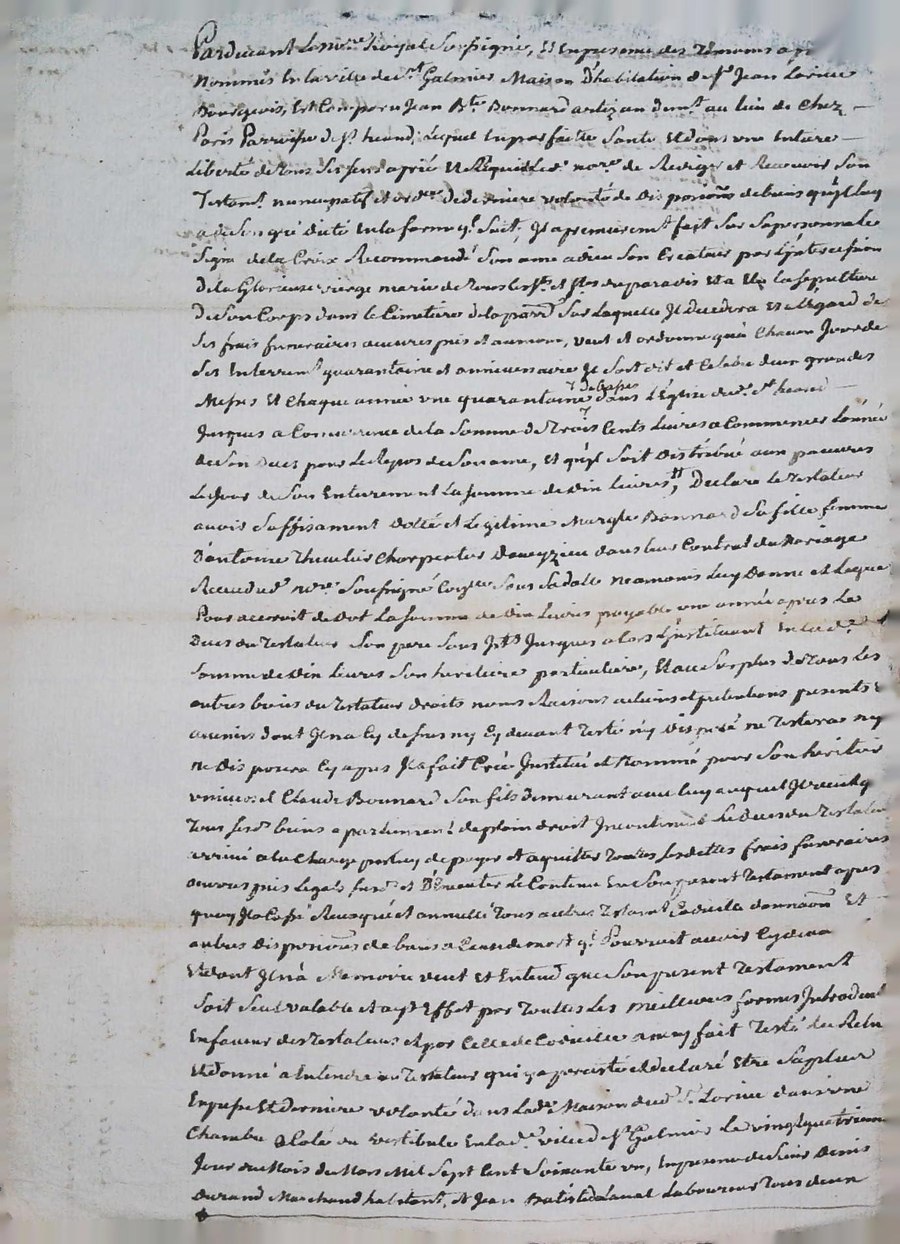 Pardevant le no.re Royal soussigné, et en presence des temoins apr
nommés en la ville de St Galmier Maison D'habitation de sr Jean Lorine
Bourgeois, est comparu Jean Bte Bonnard artizan demt au lieu de chez
Paris Parroisse de st heand, Lequel en parfaitte santé et dans une entiere
Liberté de tous ses sens a prié et Requis Led. nore de Rediger et Recevoir son
Testamt nuncupatif et ordre de derniere volonté de Dispositions de biens qu'il luy
a de son gré dicté en la forme q. suit, Il a premieremt fait sur sa personne le
signe de la Croix Recommandé son ame a dieu son Createur par l'intercession
de la Glorieuse vierge marie de tous les sts et stes du paradis et a Elu la sepulture
de son Corps dans le Cimetiere de la parre sur laquelle il decedera et a l'egard de
ses frais funeraires œuvres pies et aumone, veut et ordonne qu'a chacun jour de
ses enterremt quarantaine et anniversaire il soit dit et celebré deux grandes
Messes et chaque année une quarantaine de basses dans l'Eglise dud. st heand
jusques a Concurrence de la somme de trois cents Livres a Commencer l'année
de son deces pour le Repos de son ame, et qu'il soit distribué aux pauvres
le jour de son enterrement la somme de dix livres, Declare le testateur
avoir suffisament dotté et Legitimé Margte Bonnard sa fille femme
D'antoine charpentier dans leur Contrat de Mariage
Receu dud. nore soussigné sous sa datte neamoins luy Donne et Legue
Pour accroit de Dot la somme de dix Livres payable une année apres le
Deces du Testateur son pere sans jts jusques alors l'instituant en lad.
somme de dix livres son heritiere particuliere, et au surplus de tous les
autres biens du Testateur droits noms Raisons actions et pretentions presents &
avenirs dont il n'a cy dessus ny cy devant Testé ny Disposé ne testera ny
ne Disposera cy apres Il a fait Créé Institué et Nommé pour son heritier
universel Claude Bonnard son fils demeurant avec luy auquel il veut q
Tous sesd. biens apartiennent de plain droit Incontinent le Deces du Testateur
arrivé a la charge par luy de payer et aquitter toutes ses dettes frais funeraires
œuvres pies Legats susd. et D'Executer le Contenu en son present Testament apres
quoy Il a Cassé Revoqué et annullé tous autres Testamt Codicille donnaõn Et
autres Dispositions de biens a Cause de mort q. Pourroit avoir cy devan
et dont Il n'a Memoire veut et Entend que son present Testament
soit seul valable et ayt Effet par touttes les meilleures formes Introduites
En faveur des Testateurs et par Celle de Codicille
et donné a Entendre au Testateur qui y a percisté et declaré Etre sa plus
Expresse et derniere volonté dans lad. Maison dud. sr Lorine dans une
Chambre a Coté du vestibule en lad. ville de st Galmier le vingt quatrieme
Jour du Mois de Mars Mil Sept Cent Soixante un, En presence de sieur Denis
Durand Marchand habitant, et Jean Batiste Laval Laboureur tous deux